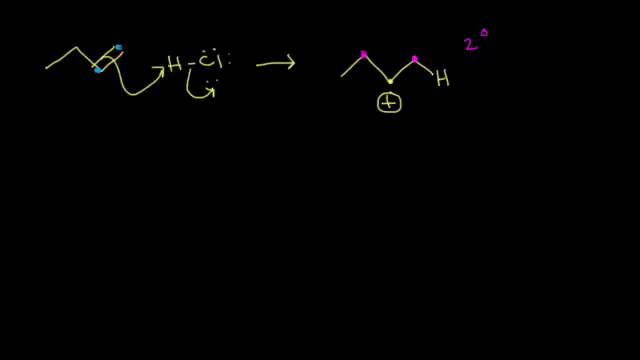 H-Cl: → H 2°
+